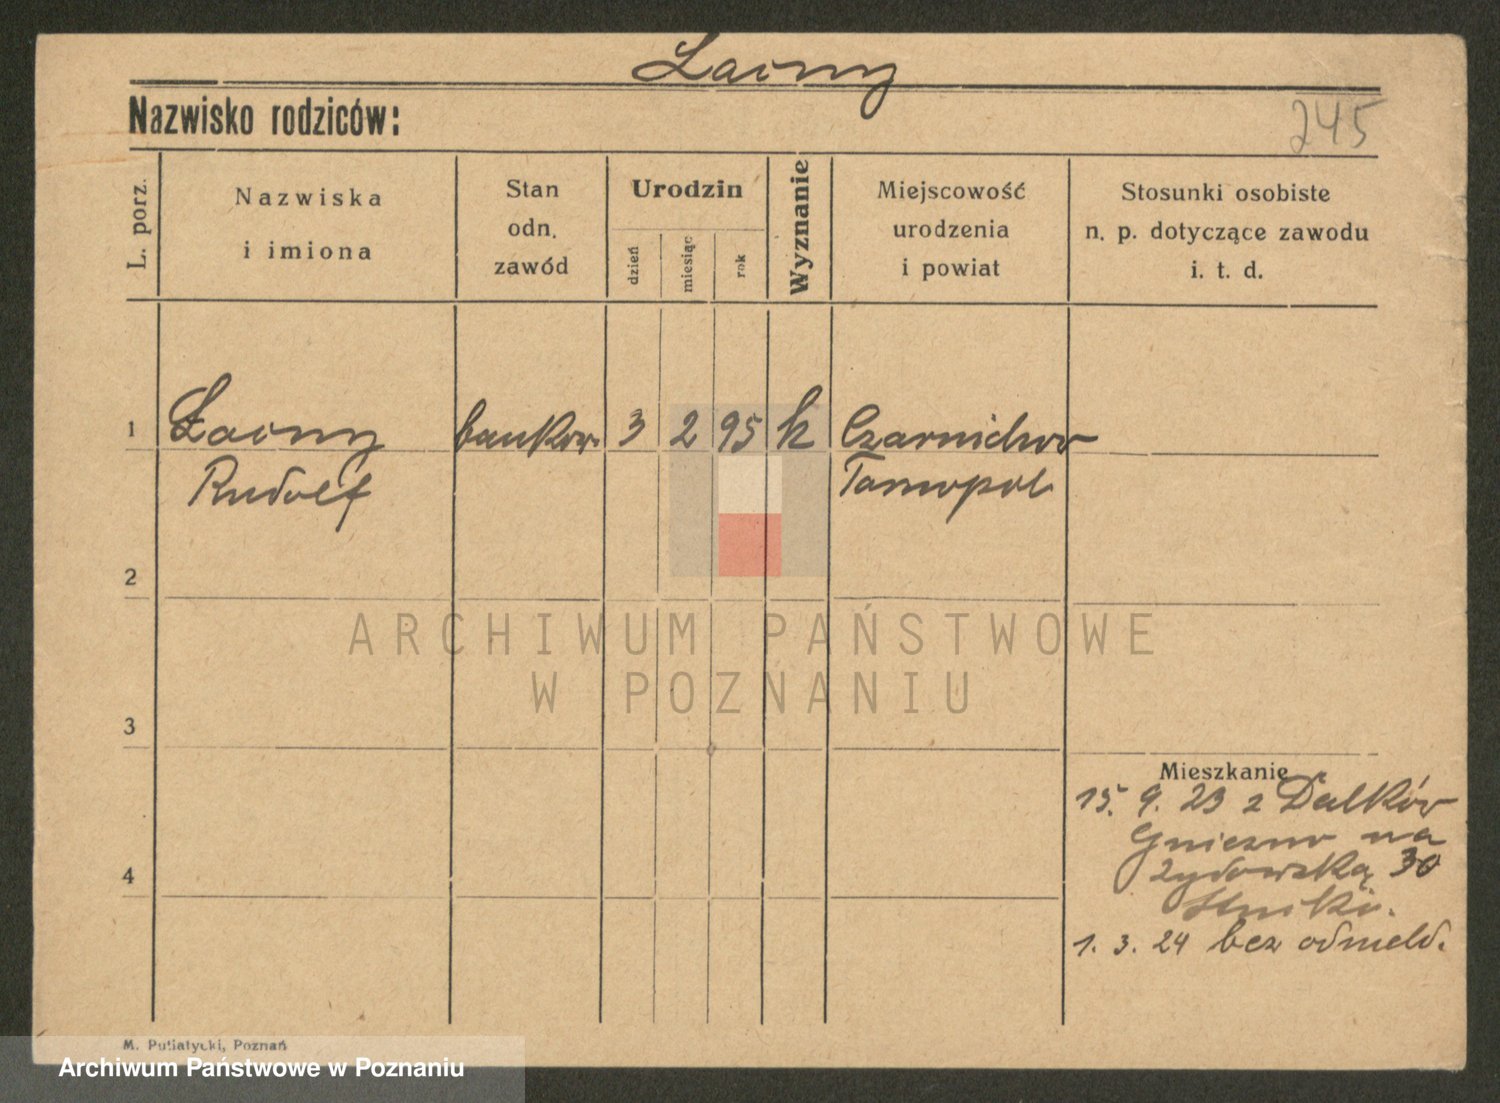 Łacny
Nazwisko rodziców:
245
L. porz.
Nazwiska
i imiona
Stan
odn.
zawód
Urodzin
dzień
miesiąc
rok
Wyznanie
Miejscowość
urodzenia
i powiat
Stosunki osobiste
n. p. dotyczące zawodu
i. t. d.
1 Łacny bankow. 3 2 95 k
Rudolf Tarnopol
2
3
4
ARCHIWUM PAŃSTWOWE
W POZNANIU
Mieszkanie
15. 9. 23 z Dalków
Gniezno na
Żydowską 30
1. 3. 24 bez odmeld.
M. Putiatycki, Poznań
Archiwum Państwowe w Poznaniu